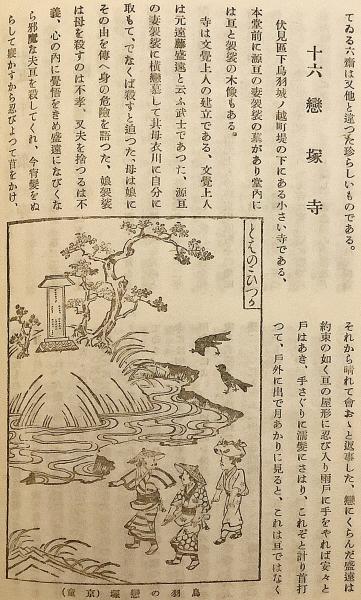 てゐる六齋は又他と違つた珍らしいものである。
十六　戀塚寺
伏見區下鳥羽城ノ越町堤の下にある小さい寺である、
本堂前に源亘の妻袈裟の墓があり堂內に
は亘と袈裟の木像もある。
寺は文覺上人の建立である、文覺上人
は元遠藤盛遠と云ふ武士であつた、源亘
の妻袈裟に橫戀慕して其母衣川に自分に
取もて、でなくば殺すと迫つた、母は娘に
その由を傳へ身の危險を語つた、娘袈裟
は母を殺すのは不孝、又夫を捨つるは不
義、心の內に覺悟をきめ盛遠になびくな
ら邪魔な夫亘を殺してくれ、今宵髮をぬ
らして寢かすから忍びよつて首をかけ、
それから晴れて會おゝと返事した、戀にくらんだ盛遠は
約束の如く亘の屋形に忍び入り雨戶に手をやれば妾々と
戶はあき、手さぐりに濡髮にさはり、これぞと計り首打
つて、戶外に出で月あかりに見ると、これは亘ではなく
とばのこひつか
鳥羽の戀塚（京童）